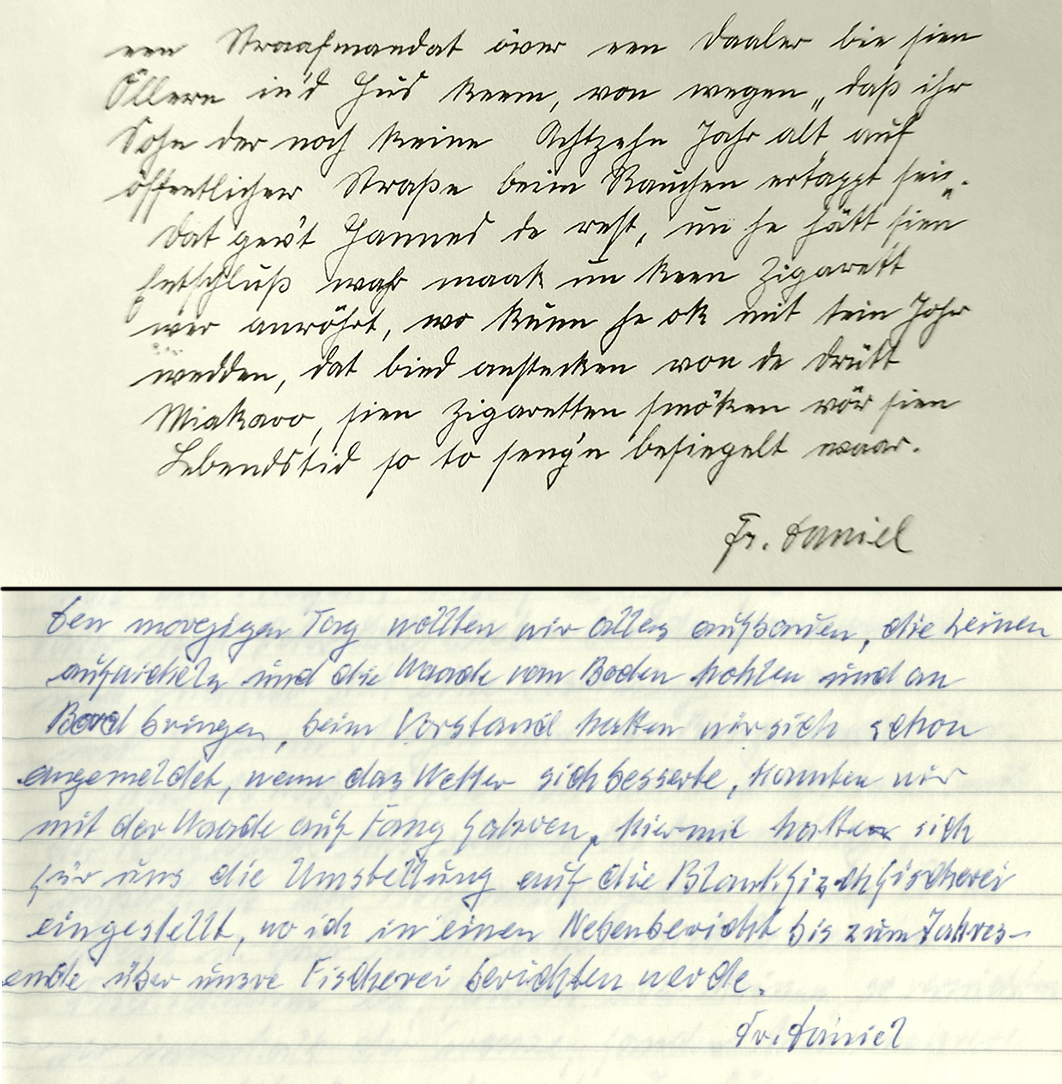 een Straafmandat över een Daaler bie sien
Öllern in'd Hus keem, von wegen „daß ihr
Sohn der noch keine Achtzehn Jahr alt auf
öffentlicher Straße beim Rauchen ertappt sei".
Dat gew't Hannes de rest, un he hätt sien
Entschluß wahr maak un keen Zigarett
wer anröhrt, wo kunn he ok mit tein Johr
wedden, dat bied anstecken von de drütt
Miakaro, sien Zigaretten smöken vör sien
Lebendstid so to seng'n besiegelt waar.
Fr. Daniel
den morgigen Tag wollten wir alles aufbauen, die Leinen
aufwickeln und die Waade vom Boden hohlen und an
Bord bringen, beim Vorstand hatten wir sich schon
angemeldet, wenn das Wetter sich besserte, konnten wir
mit der Waade auf Fang fahren, hiermit hatten sich
für uns die Umstellung auf die Blankfischfischerei
eingestellt, wo ich in einen Nebenbericht bis zum Jahres-
ende über unsre Fischerei berichten werde.
Fr. Daniel